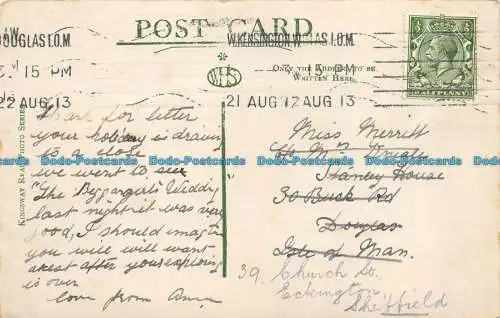 POST CARD
DOUGLAS I.O.M.
W.KENSINGTON.W.
LAS I.O.M.
15 PM
15 PM
22 AUG 13
21 AUG 12 AUG 13
WHS
ONLY THE ADDRESS TO BE
WRITTEN HERE.
HALFPENNY
KINGSWAY REAL PHOTO SERIES
Thank for letter
your holiday is drawing
to a close
we went to see
"The Beggargirl's Widdy
last night it was very
good, I should imagine
you will want
a rest after your exploring
is over
love from
Miss Merritt
Stanley House
30 Buck Rd
Douglas
Isle of Man.
39. Church St.
Eckington
Sheffield
Dodo-Postcards Dodo-Postcards Dodo-Postcards Dodo-Postcards Dodo-Postcards